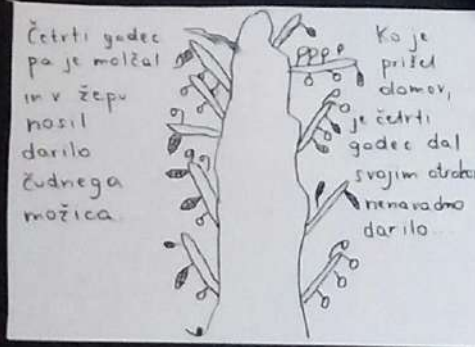 Četrti godec
pa je molčal
in v žepu
nosil
darilo
čudnega
možica.
Ko je
prišel
domov,
je četrti
godec dal
svojim otrokom
nenavadno
darilo...